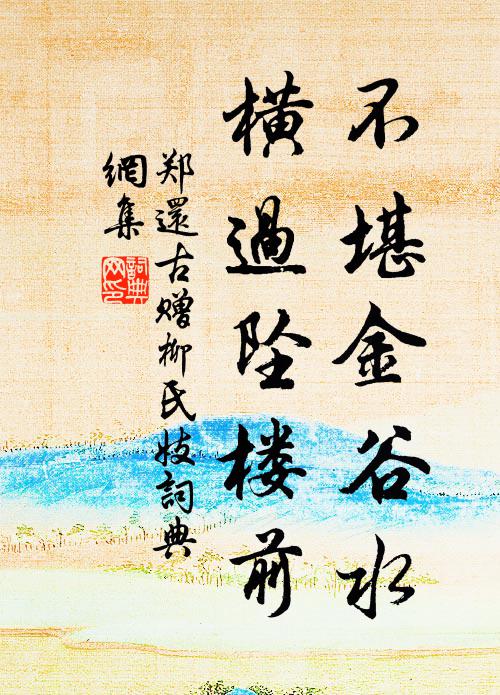 不堪金谷水
橫過坠楼前
郑還古赠柳氏妓詞典
網集
詞典
网印